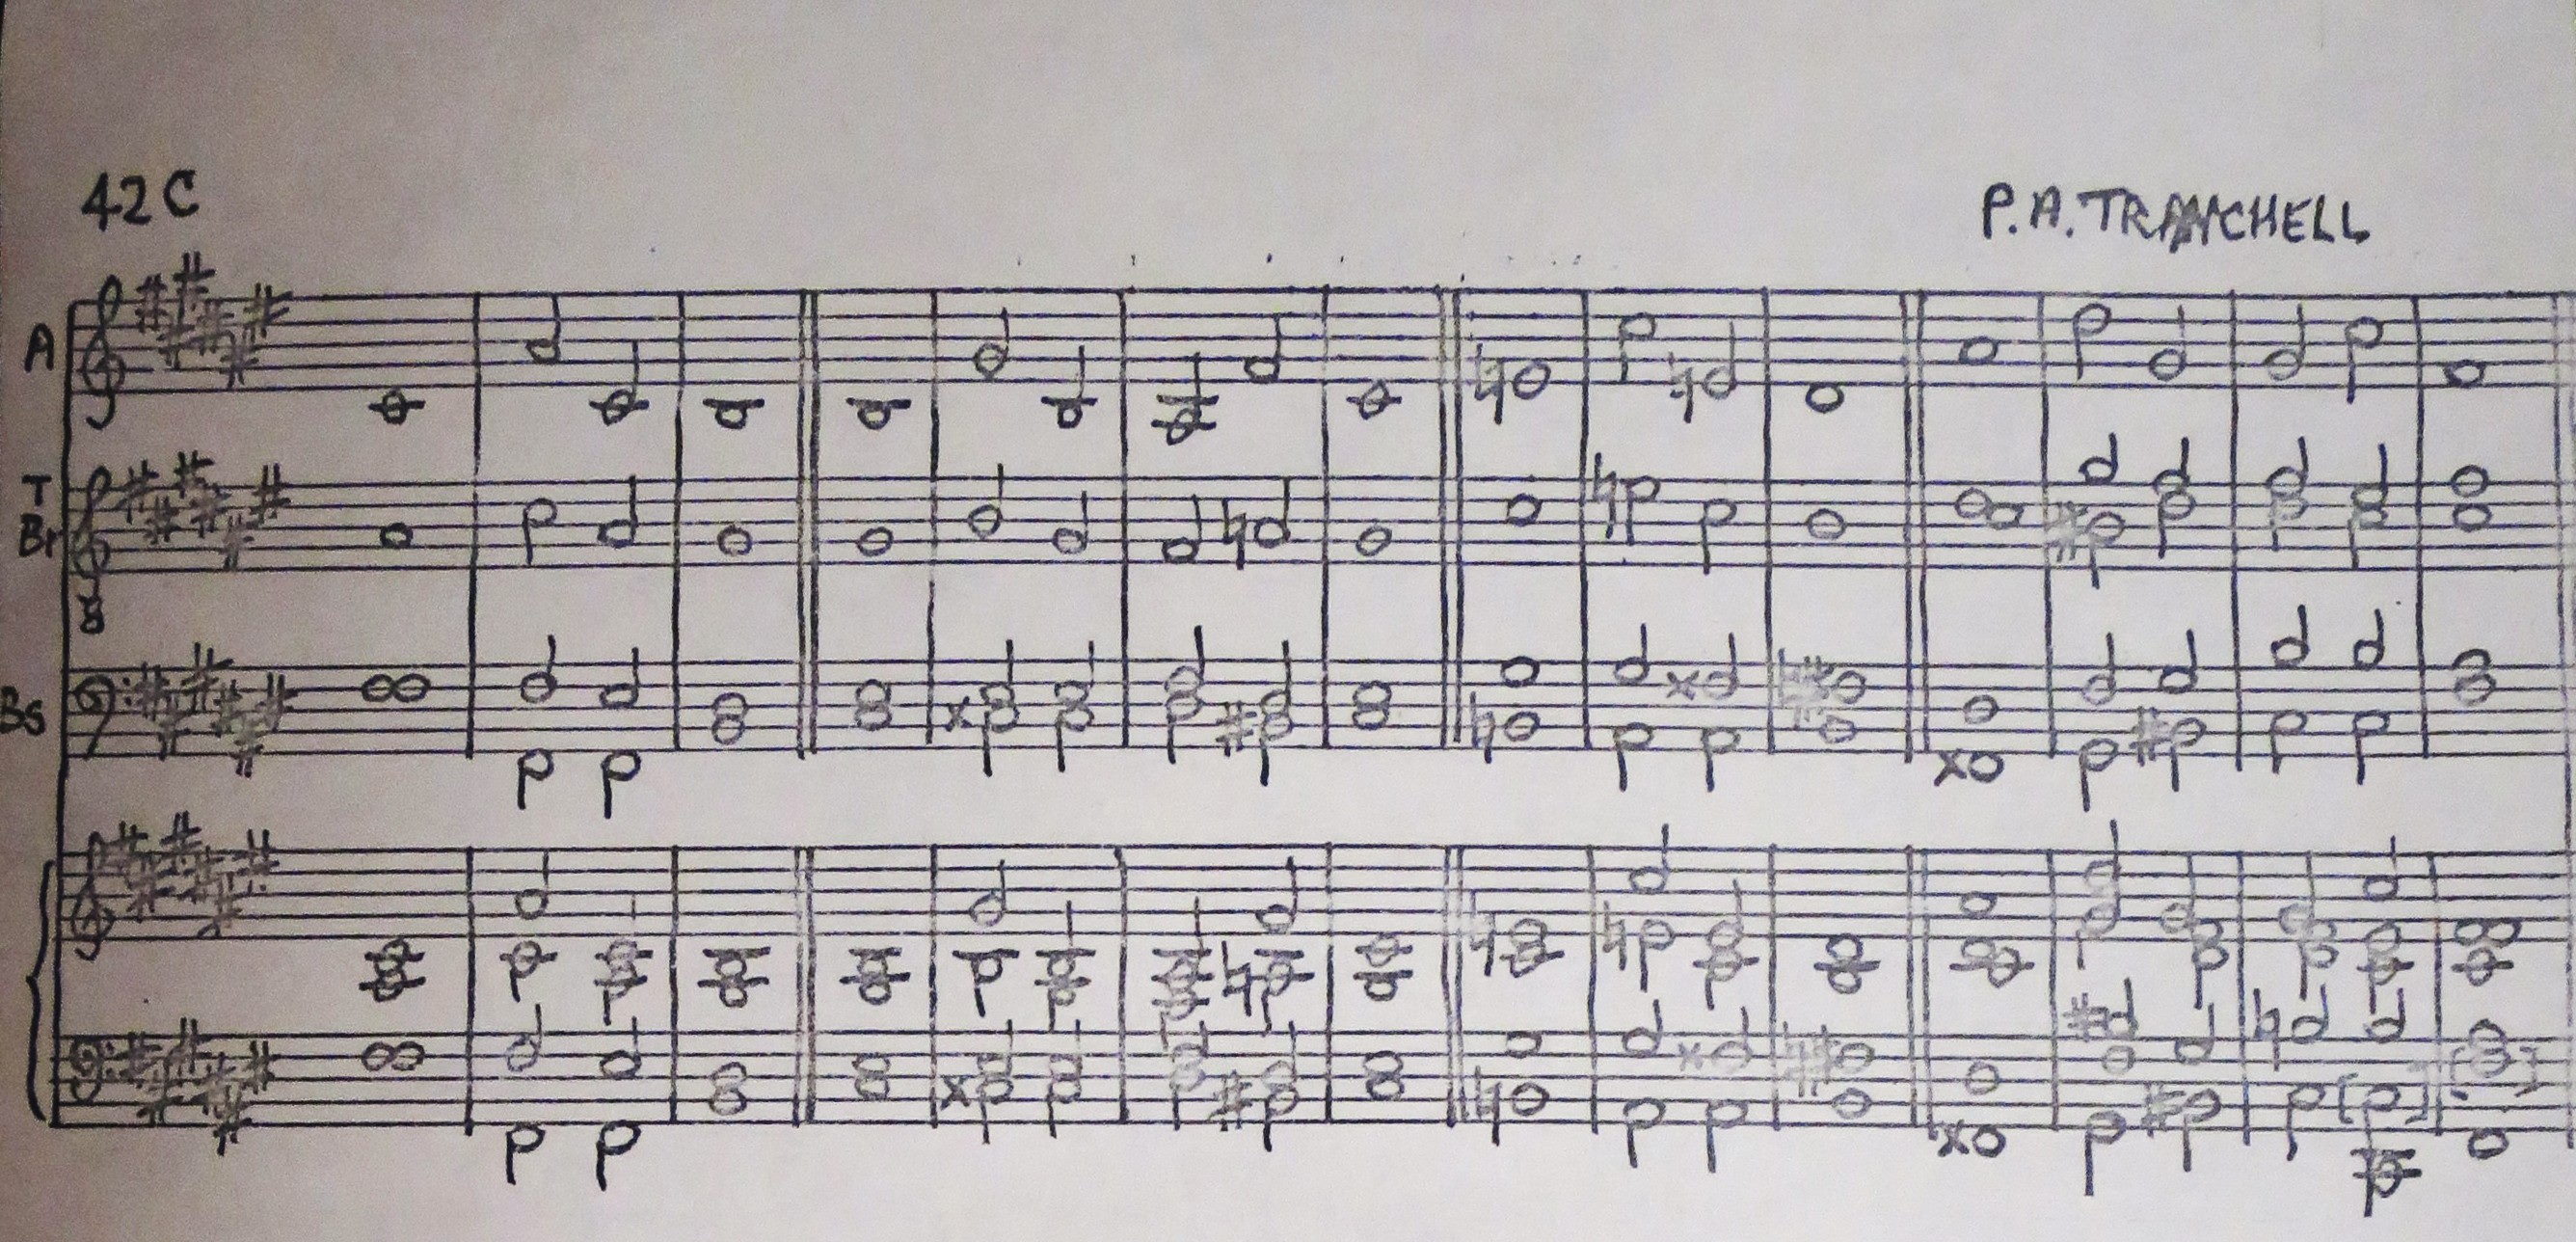 42C
P.A.TRANCHELL
A
T
Br
8
Bs